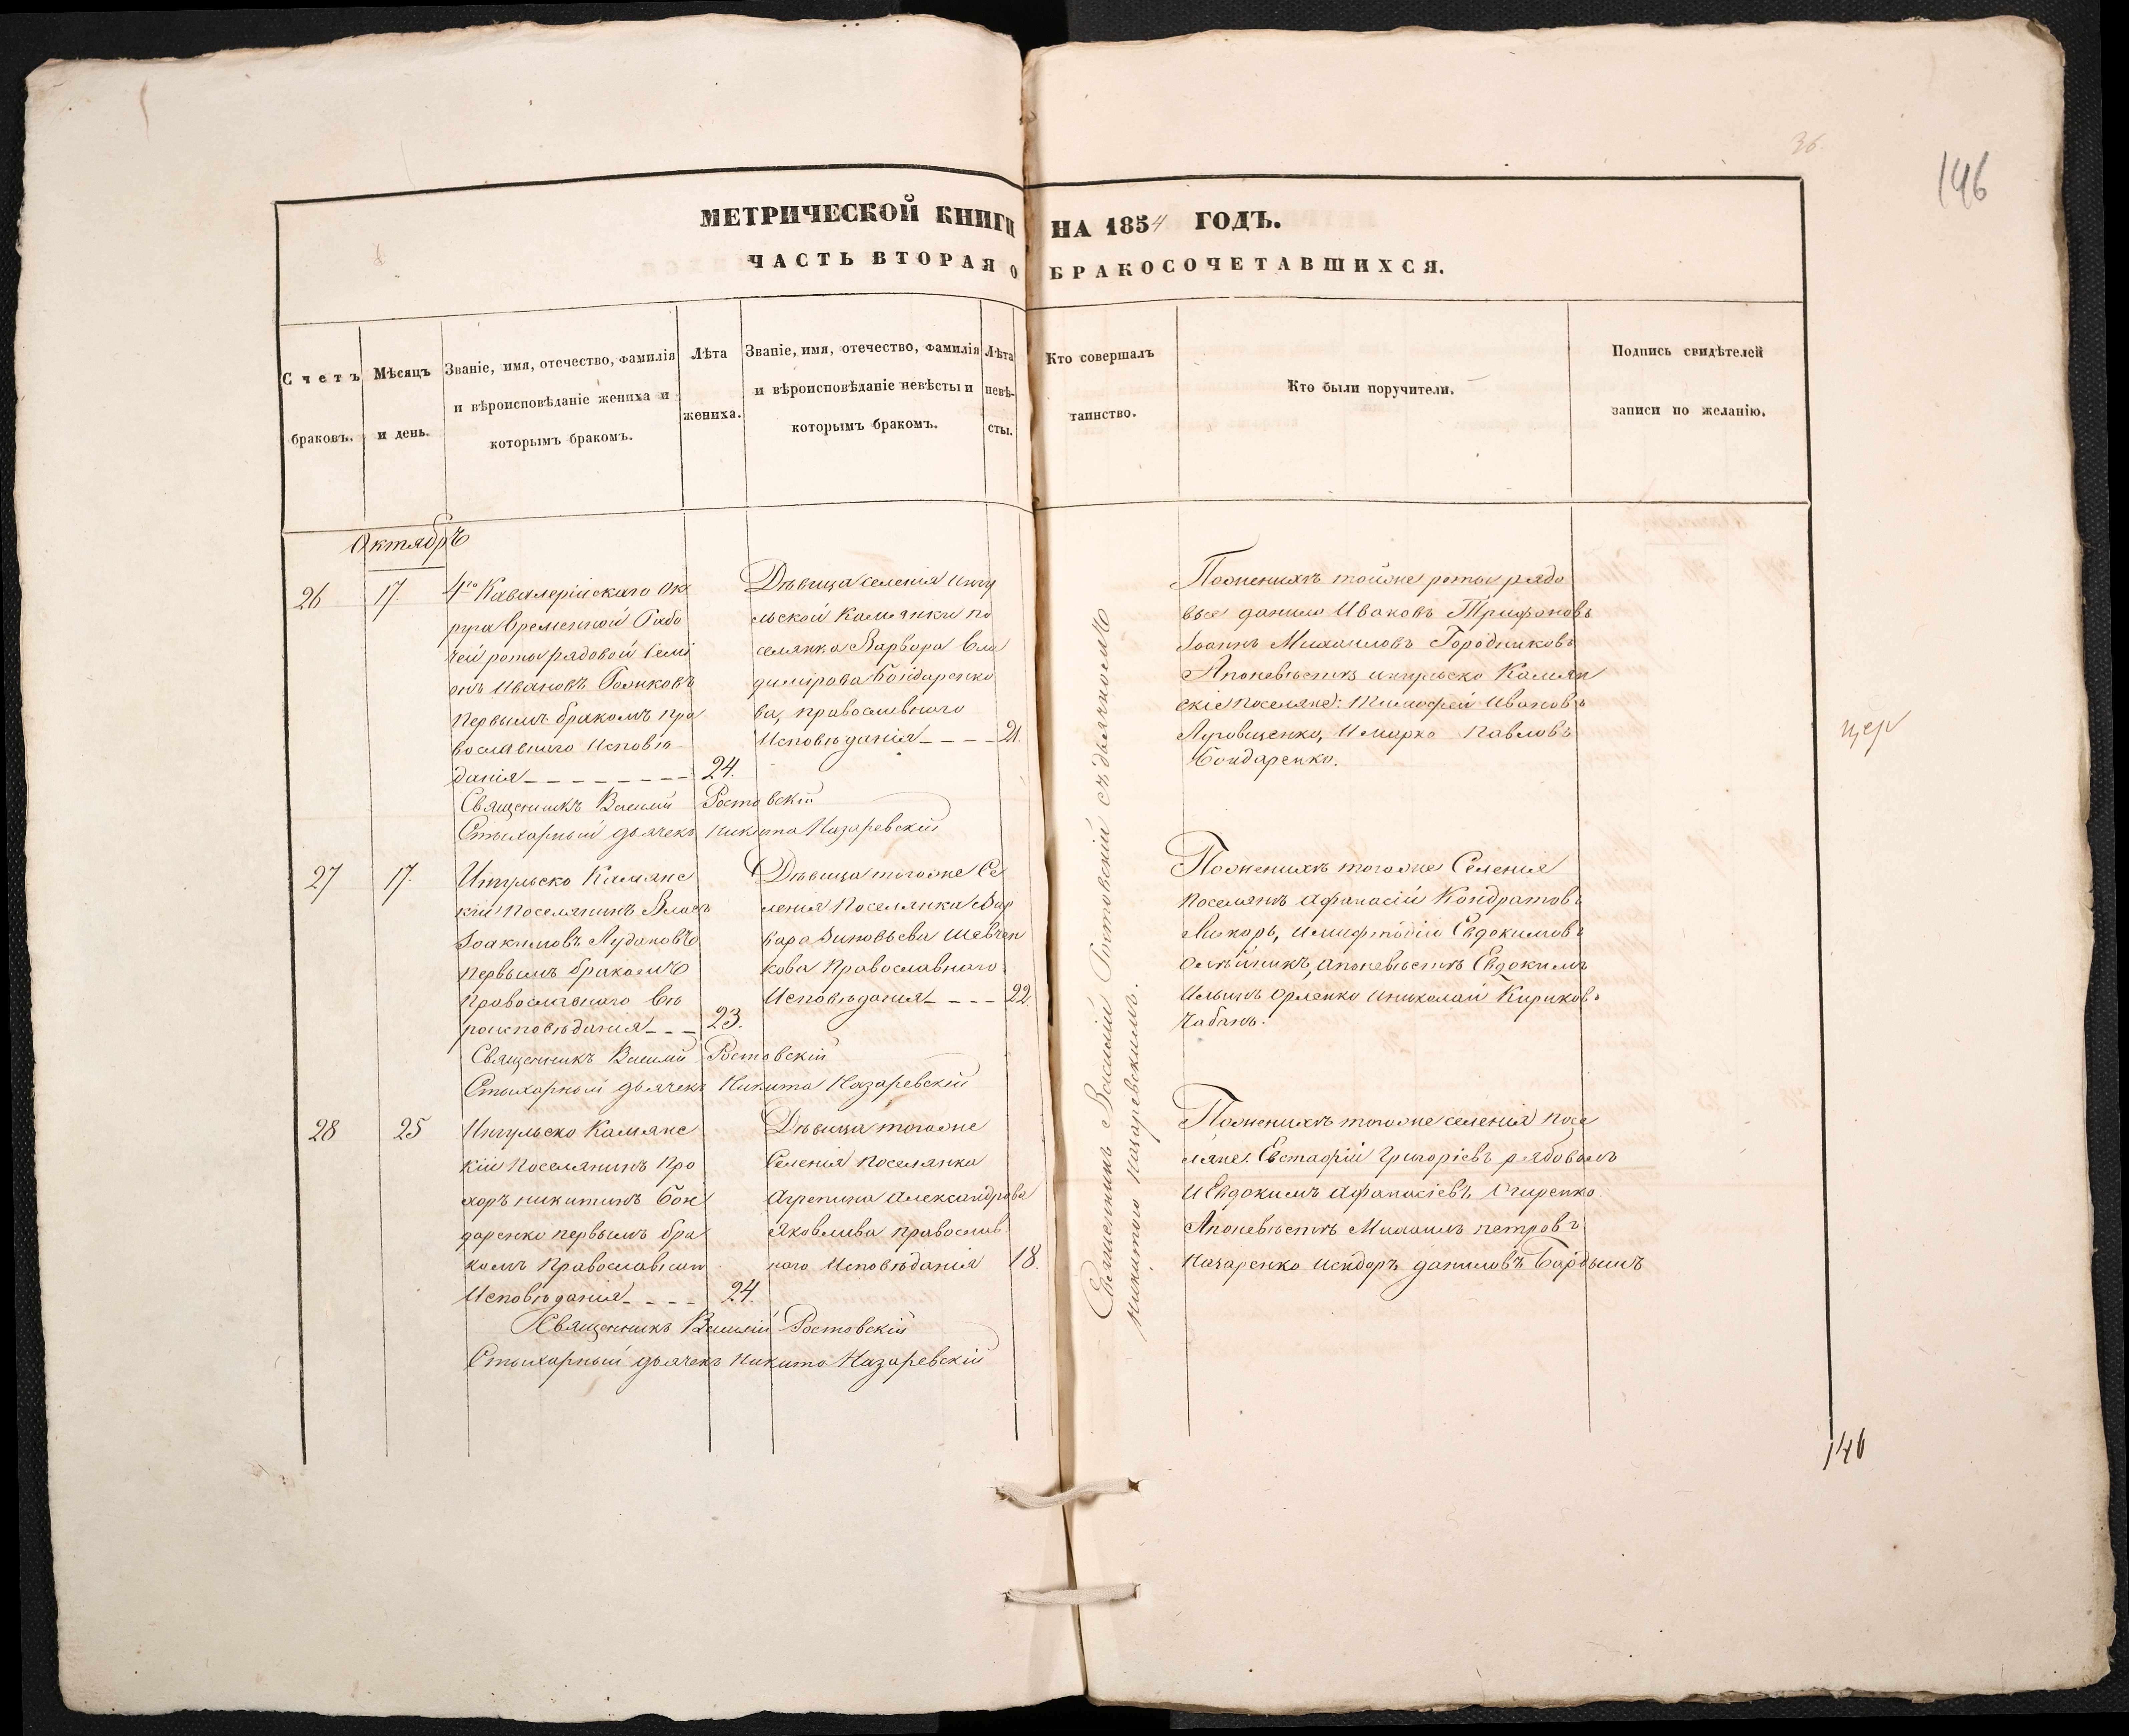 36
146
МЕТРИЧЕСКОЙ КНИГИ НА 1854 ГОДЪ.
ЧАСТЬ ВТОРАЯ О БРАКОСОЧЕТАВШИХСЯ.
Счетъ браковъ.
Мѣсяцъ и день.
Званіе, имя, отечество, фамилія
и вѣроисповѣданіе жениха и
которымъ бракомъ.
Лѣта
жениха.
Званіе, имя, отечество, фамилія
и вѣроисповѣданіе невѣсты и
которымъ бракомъ.
Лѣта
невѣ-
сты.
Кто совершалъ
таинство.
Кто были поручители.
Подпись свидѣтелей
записи по желанію.
Октябрь
26
17.
4го Кавалерійскаго Ок
руга временной Рабо
чей роты рядовой Семі
онъ Ивановъ Голиковъ
первымъ бракомъ пра
вославнаго Исповѣ
данія
24.
Дѣвица селенія Ингу
льской Камянки по
селянка Варвара Вла
димірова Бондаренко
ва, православнаго
Исповѣданія
21.
По женихѣ тойже роты рядо
вые данило Ивановъ Трифоновъ
Іоаннъ Михаиловъ Городниковъ
А по невѣстѣ ингульско Камян
скіе поселяне: Тимофей Ивановъ
Луговщенко, И марко Павловъ
Бондаренко.
Священникъ Василій Ростовскій
Стыхарный дьячекъ никита Назаревскій
27
17.
Ингульско Камянс
кій поселянинъ Власъ
Іоакимовъ Лудановъ
первымъ бракомъ
Православнаго вѣ
роисповѣданія
23.
Дѣвица тогоже Се
ленія Поселянка Вар
вара Зиновьева Шевчен
кова Православнаго
Исповѣданія
22.
По женихѣ тогоже Селенія
поселяне Афанасій Кондратовъ
Евдокимовъ
Олѣйникъ, а по невѣстѣ Евдокимъ
Ильинъ Орленко и николай Кириковъ
Чабанъ.
Священникъ Василій Ростовскій
Стыхарный дьячекъ Никита Назаревскій
28
25
Ингульско Камянс
кій Поселянинъ Про
хоръ никитинъ Бон
даренко первымъ бра
комъ Православнаго
Исповѣданія
24.
Дѣвица тогоже
Селенія поселянка
Агрепина Александрова
Яковлива православ
наго Исповѣданія
18.
По женихѣ тогоже селенія посе
ляне: Евстафій Григоріевъ рядоволъ
И Евдокимъ Афанасіевъ Огиренко.
А по невѣстѣ Михаилъ петровъ
Назаренко Исидоръ даниловъ
Священникъ Василій Ростовскій
Стыхарный дьячекъ никита Назаревскій
Священникъ Василій Ростовскій съ дьячкомъ
никитою Назаревскимъ.
146